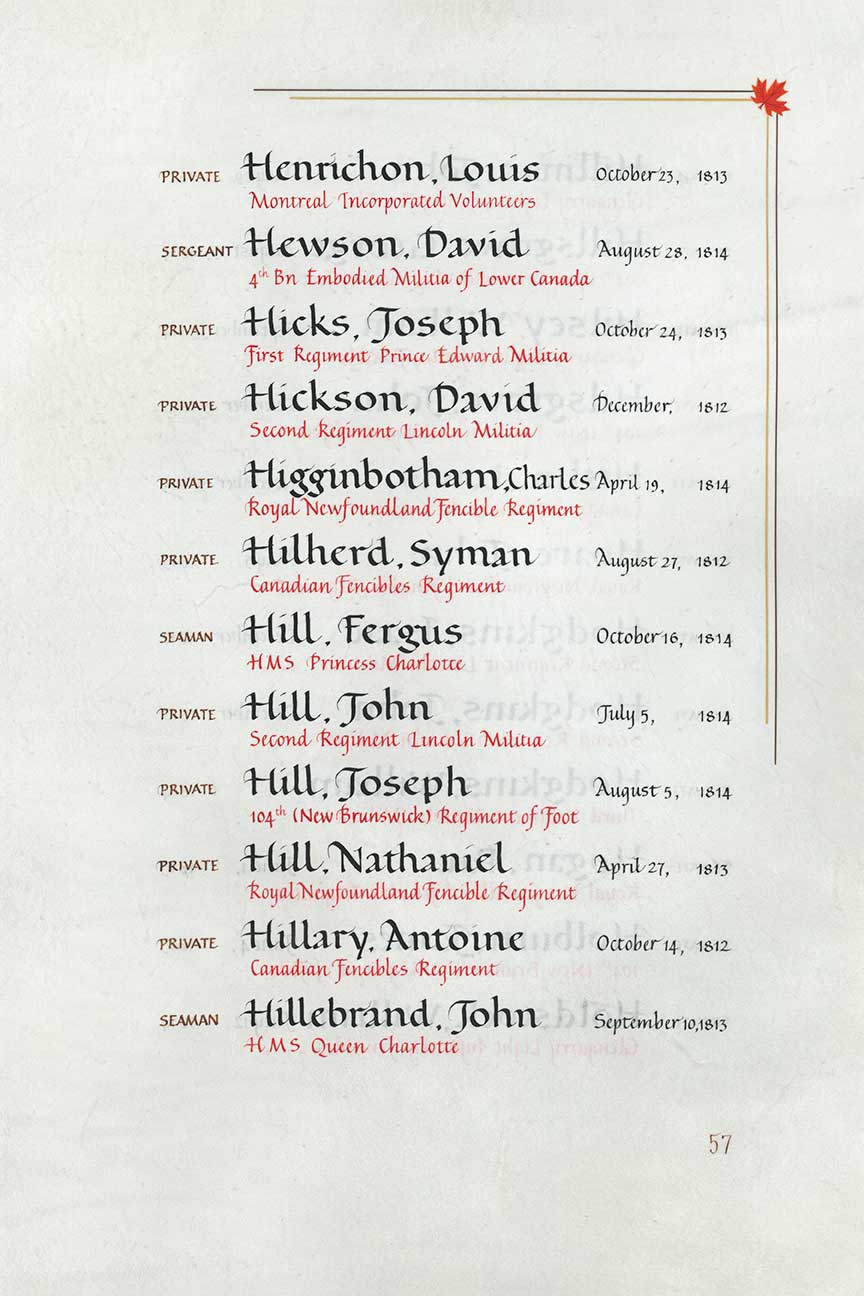 PRIVATE Henrichon, Louis October 23, 1813
Montreal Incorporated Volunteers
SERGEANT Hewson, David August 28, 1814
4th Bn Embodied Militia of Lower Canada
PRIVATE Hicks, Joseph October 24, 1813
First Regiment Prince Edward Militia
PRIVATE Hickson, David December, 1812
Second Regiment Lincoln Militia
PRIVATE Higginbotham, Charles April 19, 1814
Royal Newfoundland Fencible Regiment
PRIVATE Hilherd, Syman August 27, 1812
Canadian Fencibles Regiment
SEAMAN Hill, Fergus October 16, 1814
HMS Princess Charlotte
PRIVATE Hill, John July 5, 1814
Second Regiment Lincoln Militia
PRIVATE Hill, Joseph August 5, 1814
104th (New Brunswick) Regiment of Foot
PRIVATE Hill, Nathaniel April 27, 1813
Royal Newfoundland Fencible Regiment
PRIVATE Hillary, Antoine October 14, 1812
Canadian Fencibles Regiment
SEAMAN Hillebrand, John September 10, 1813
HMS Queen Charlotte
57